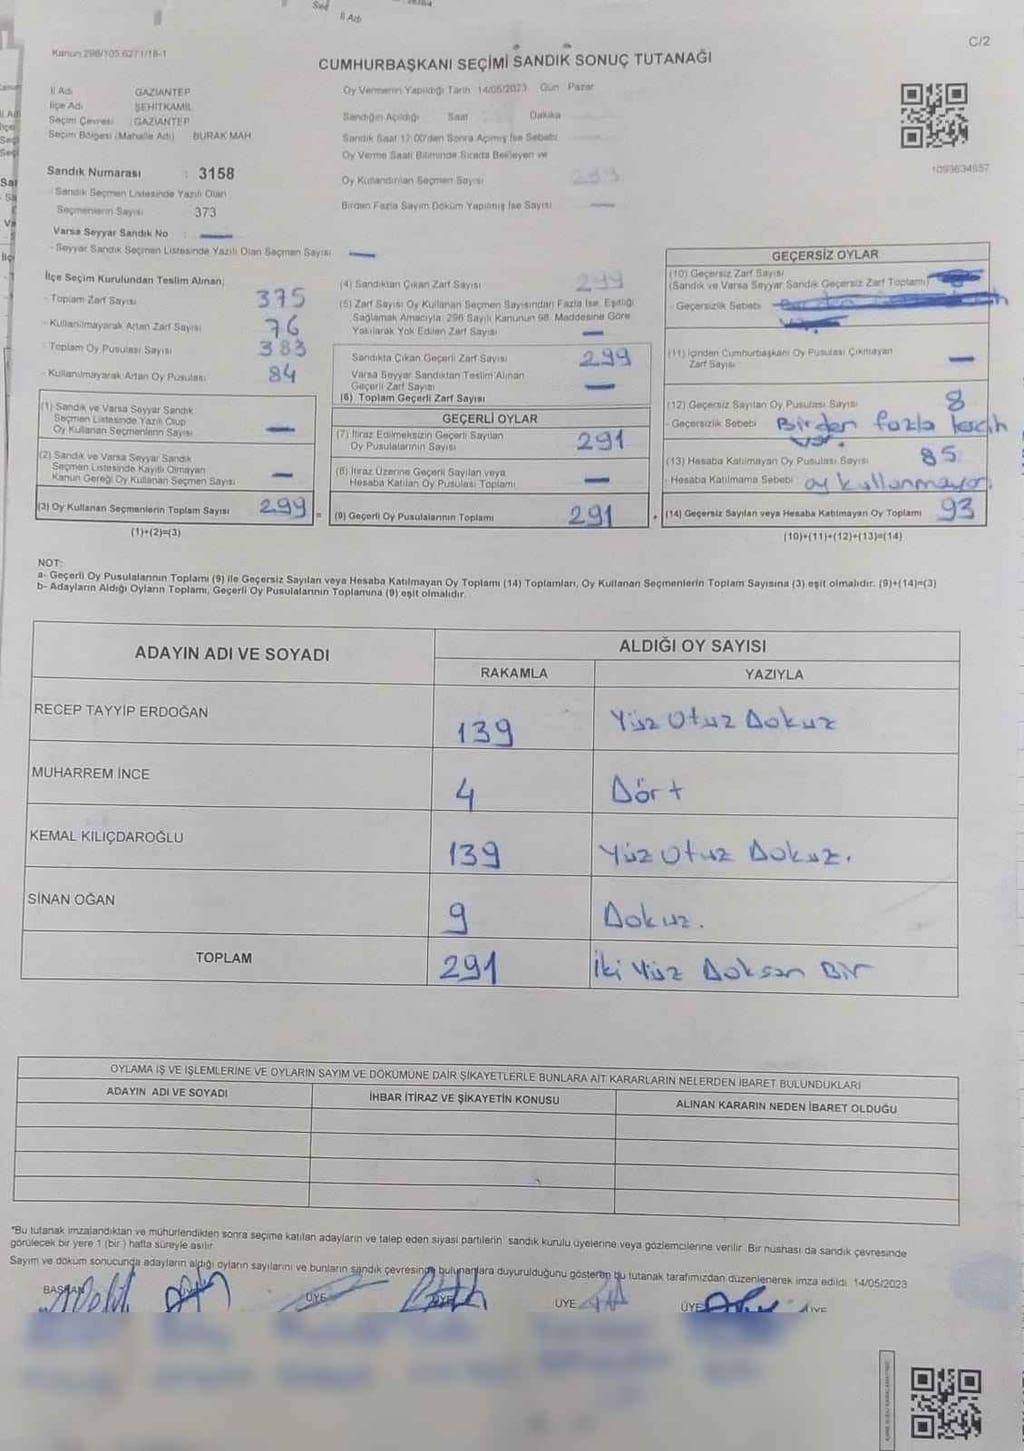 Kanun 298/105,627 1/18-1
C/2
CUMHURBAŞKANI SEÇİMİ SANDIK SONUÇ TUTANAĞI
İl Adı GAZİANTEP
İlçe Adı ŞEHİTKAMİL
Seçim Çevresi : GAZİANTEP
Seçim Bölgesi (Mahalle Adı) BURAK MAH
Oy Vermenin Yapıldığı Tarih 14/05/2023 Gün Pazar
Sandığın Açıldığı Saat Dakika
Sandık Saat 17:00'den Sonra Açılmış İse Sebebi
Oy Verme Saati Bitiminde Sırada Bekleyen ve
Oy Kullandırılan Seçmen Sayısı 299
Birden Fazla Sayım Döküm Yapılmış İse Sayısı —
1099634657
Sandık Numarası : 3158
- Sandık Seçmen Listesinde Yazılı Olan
Seçmenlerin Sayısı 373
Varsa Seyyar Sandık No : —
- Seyyar Sandık Seçmen Listesinde Yazılı Olan Seçmen Sayısı —
İlçe Seçim Kurulundan Teslim Alınan;
- Toplam Zarf Sayısı 375
- Kullanılmayarak Artan Zarf Sayısı 76
- Toplam Oy Pusulası Sayısı 383
- Kullanılmayarak Artan Oy Pusulası 84
(1) Sandık ve Varsa Seyyar Sandık
Seçmen Listesinde Yazılı Olup
Oy Kullanan Seçmenlerin Sayısı —
(2) Sandık ve Varsa Seyyar Sandık
Seçmen Listesinde Kayıtlı Olmayan
Kanun Gereği Oy Kullanan Seçmen Sayısı —
(3) Oy Kullanan Seçmenlerin Toplam Sayısı 299
(1)+(2)=(3)
(4) Sandıktan Çıkan Zarf Sayısı 299
(5) Zarf Sayısı Oy Kullanan Seçmen Sayısından Fazla İse, Eşitliği
Sağlamak Amacıyla; 298 Sayılı Kanunun 98. Maddesine Göre
Yakılarak Yok Edilen Zarf Sayısı —
Sandıkta Çıkan Geçerli Zarf Sayısı 299
Varsa Seyyar Sandıktan Teslim Alınan
Geçerli Zarf Sayısı —
(6) Toplam Geçerli Zarf Sayısı
GEÇERLİ OYLAR
(7) İtiraz Edilmeksizin Geçerli Sayılan
Oy Pusulalarının Sayısı 291
(8) İtiraz Üzerine Geçerli Sayılan veya
Hesaba Katılan Oy Pusulası Toplamı —
= (9) Geçerli Oy Pusulalarının Toplamı 291
GEÇERSİZ OYLAR
(10) Geçersiz Zarf Sayısı
(Sandık ve Varsa Seyyar Sandık Geçersiz Zarf Toplamı)
- Geçersizlik Sebebi
(11) İçinden Cumhurbaşkanı Oy Pusulası Çıkmayan
Zarf Sayısı —
(12) Geçersiz Sayılan Oy Pusulası Sayısı 8
- Geçersizlik Sebebi Birden fazla tercih
var.
(13) Hesaba Katılmayan Oy Pusulası Sayısı 85
- Hesaba Katılmama Sebebi oy kullanmayan.
+ (14) Geçersiz Sayılan veya Hesaba Katılmayan Oy Toplamı 93
(10)+(11)+(12)+(13)=(14)
NOT:
a- Geçerli Oy Pusulalarının Toplamı (9) ile Geçersiz Sayılan veya Hesaba Katılmayan Oy Toplamı (14) Toplamları, Oy Kullanan Seçmenlerin Toplam Sayısına (3) eşit olmalıdır. (9)+(14)=(3)
b- Adayların Aldığı Oyların Toplamı, Geçerli Oy Pusulalarının Toplamına (9) eşit olmalıdır.
ADAYIN ADI VE SOYADI
ALDIĞI OY SAYISI
RAKAMLA YAZIYLA
RECEP TAYYİP ERDOĞAN 139 Yüz Otuz Dokuz
MUHARREM İNCE 4 Dört
KEMAL KILIÇDAROĞLU 139 Yüz Otuz Dokuz.
SİNAN OĞAN 9 Dokuz.
TOPLAM 291 İki Yüz Doksan Bir
OYLAMA İŞ VE İŞLEMLERİNE VE OYLARIN SAYIM VE DÖKÜMÜNE DAİR ŞİKAYETLERLE BUNLARA AİT KARARLARIN NELERDEN İBARET BULUNDUKLARI
ADAYIN ADI VE SOYADI İHBAR İTİRAZ VE ŞİKAYETİN KONUSU ALINAN KARARIN NEDEN İBARET OLDUĞU
"Bu tutanak imzalandıktan ve mühürlendikten sonra seçime katılan adayların ve talep eden siyasi partilerin sandık kurulu üyelerine veya gözlemcilerine verilir. Bir nüshası da sandık çevresinde
görülecek bir yere 1 (bir) hafta süreyle asılır.
Sayım ve döküm sonucunda adayların aldığı oyların sayılarını ve bunların sandık çevresinde bulunanlara duyurulduğunu gösteren bu tutanak tarafımızdan düzenlenerek imza edildi. 14/05/2023
BAŞKAN ÜYE ÜYE ÜYE ÜYE ÜYE